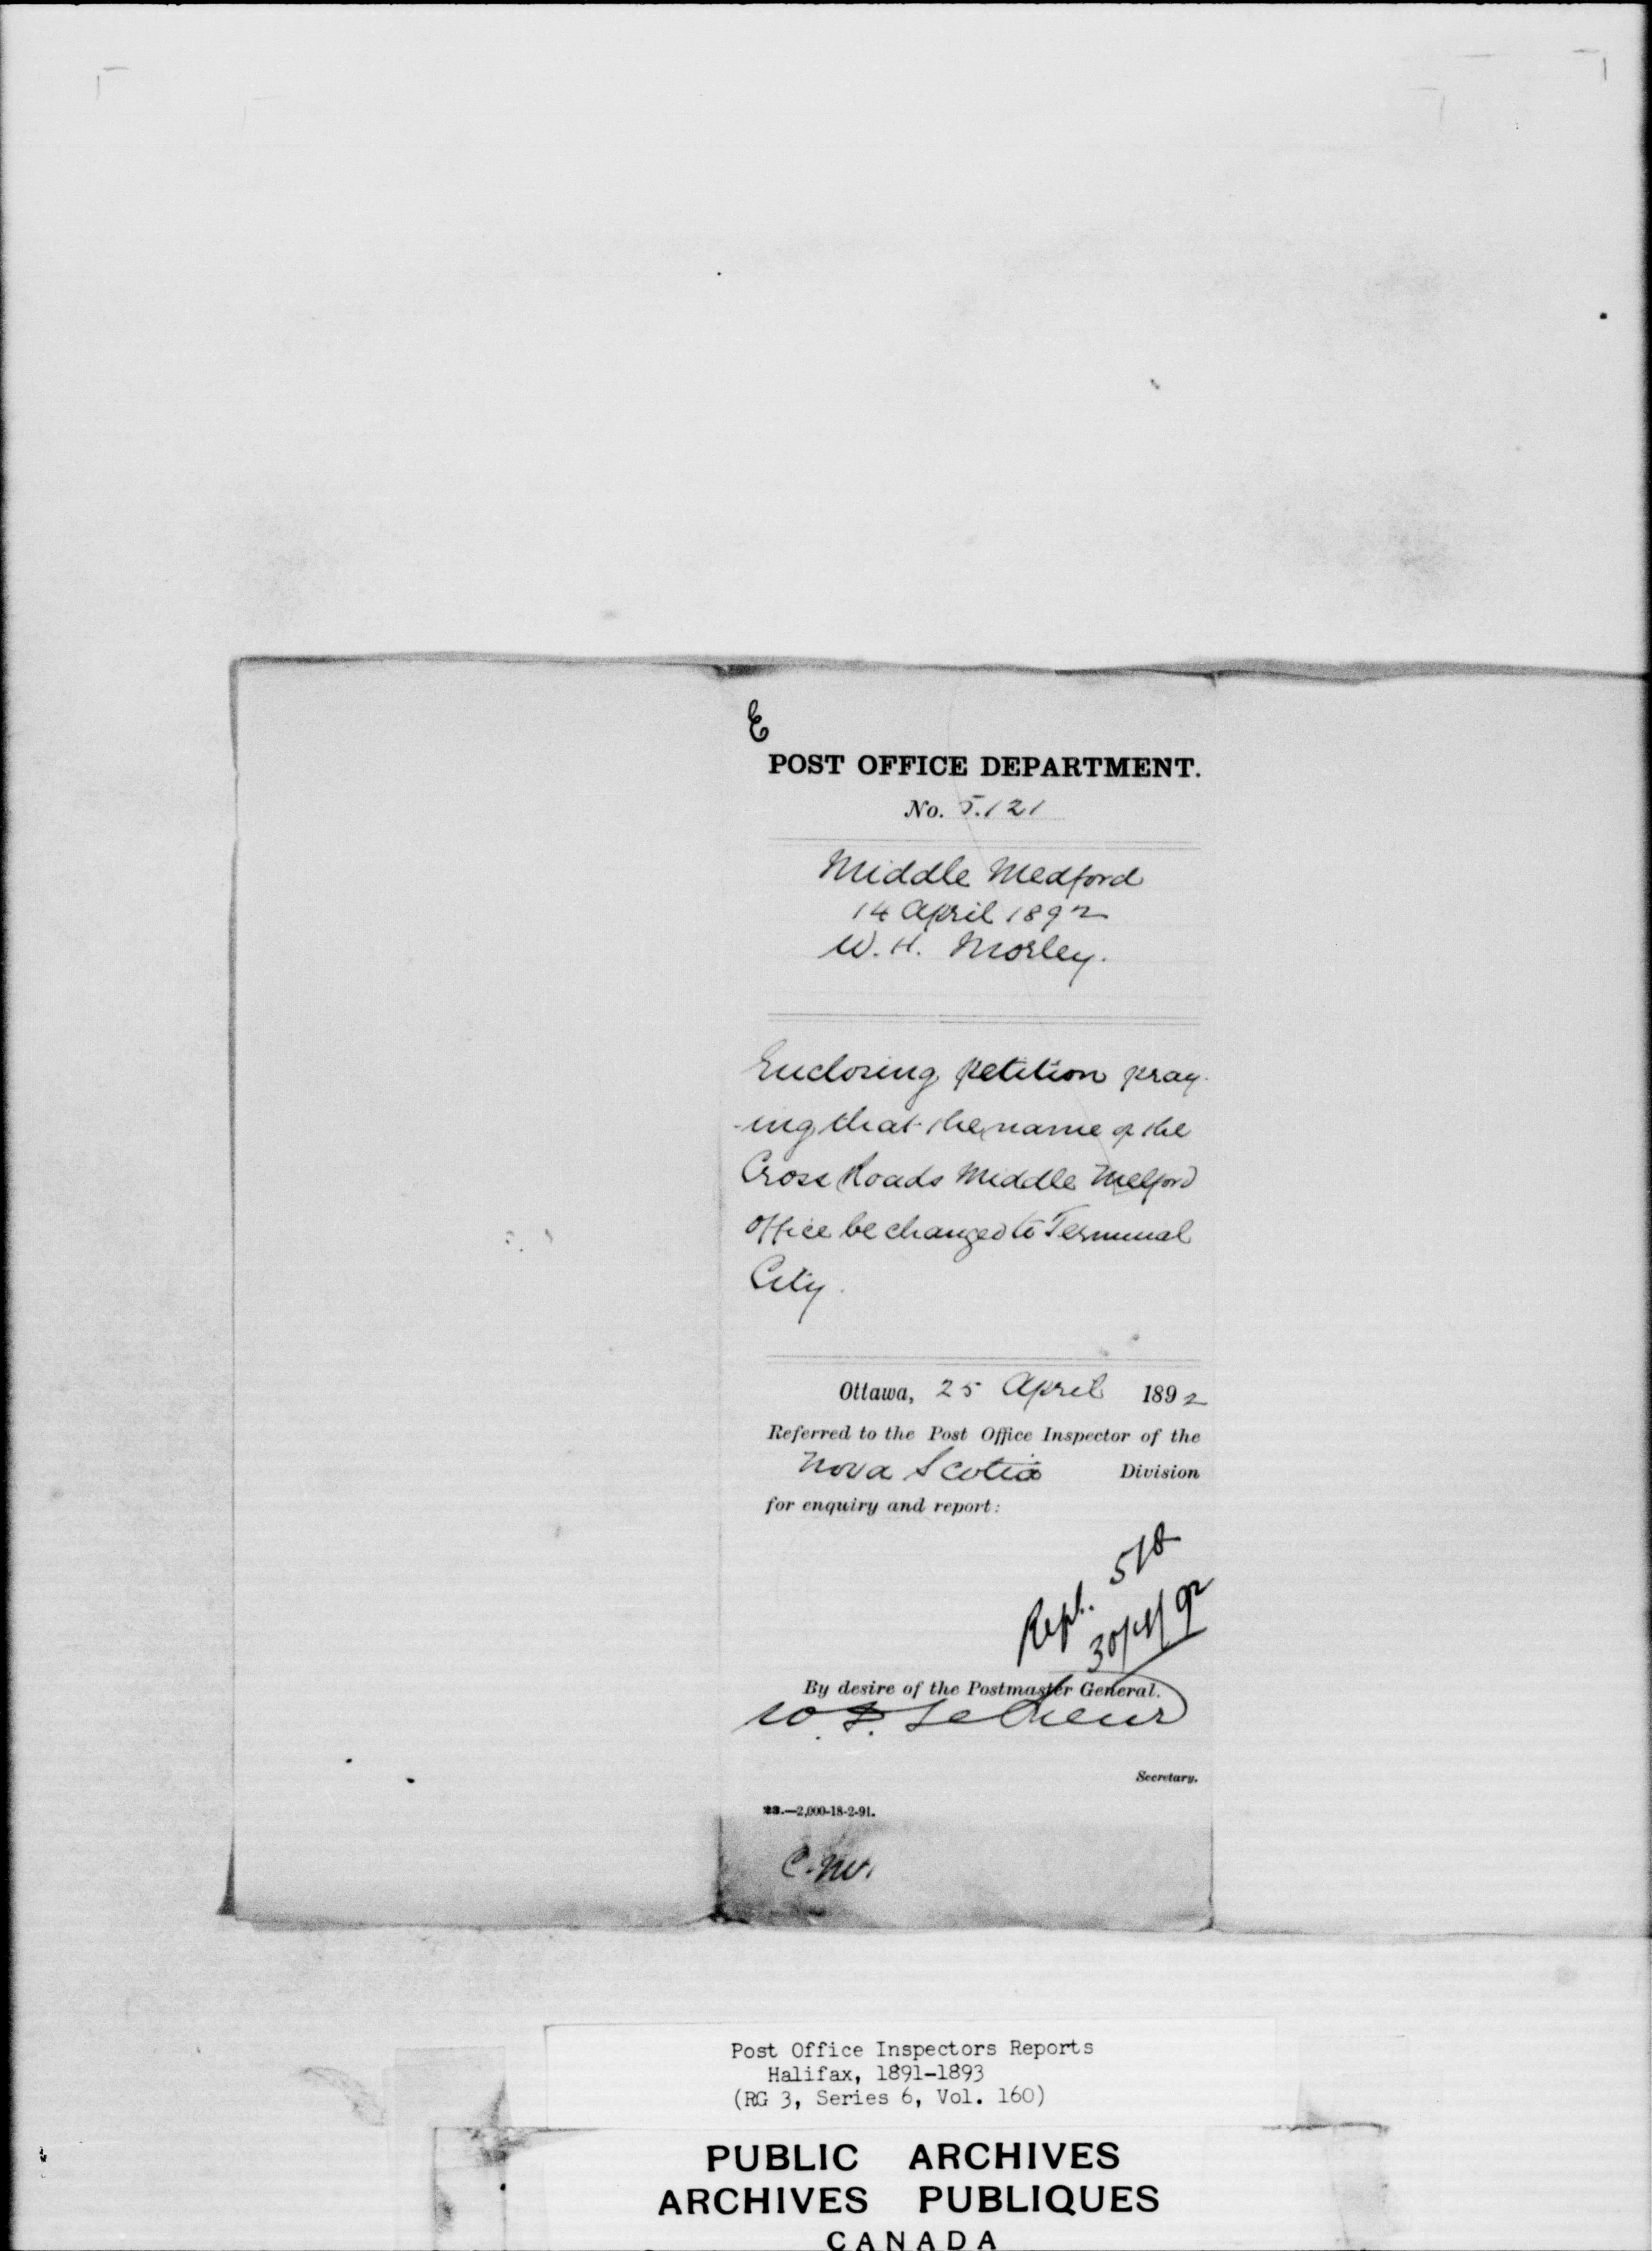 E
POST OFFICE DEPARTMENT.
No. 5.121
Middle Medford
14 April 1892
W. H. Morley.
Enclosing petition pray-
-ing that the name of the
Cross Roads Middle Melford
Office be changed to Terminal
City.
Ottawa, 25 April 1892
Referred to the Post Office Inspector of the
Nova Scotia Division
for enquiry and report:
Rept. 518
30/4/92
By desire of the Postmaster General.
W. D. LeSueur
Secretary.
23.—2,000-18-2-91.
Post Office Inspectors Reports
Halifax, 1891-1893
(RG 3, Series 6, Vol. 160)
PUBLIC ARCHIVES
ARCHIVES PUBLIQUES
CANADA